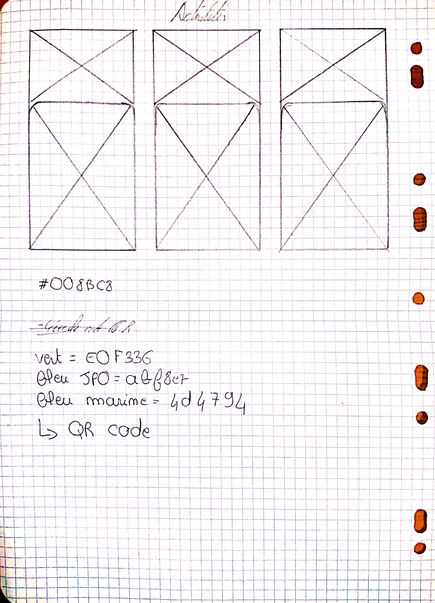 #008BC8
vert = E0F336
Bleu JPO = abf8c7
Bleu marine = 4d4794
↳ QR code